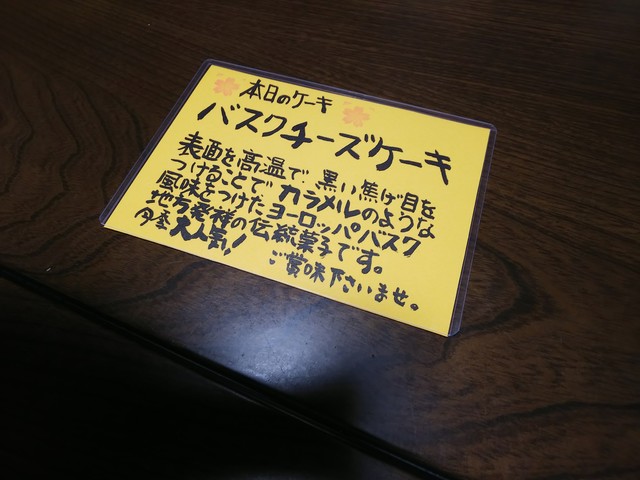 本日のケーキ
バスクチーズケーキ
表面を高温で黒い焦げ目を
つけることでカラメルのような
風味をつけたヨーロッパバスク
地方発祥の伝統菓子です。
大人気! ご賞味下さいませ。